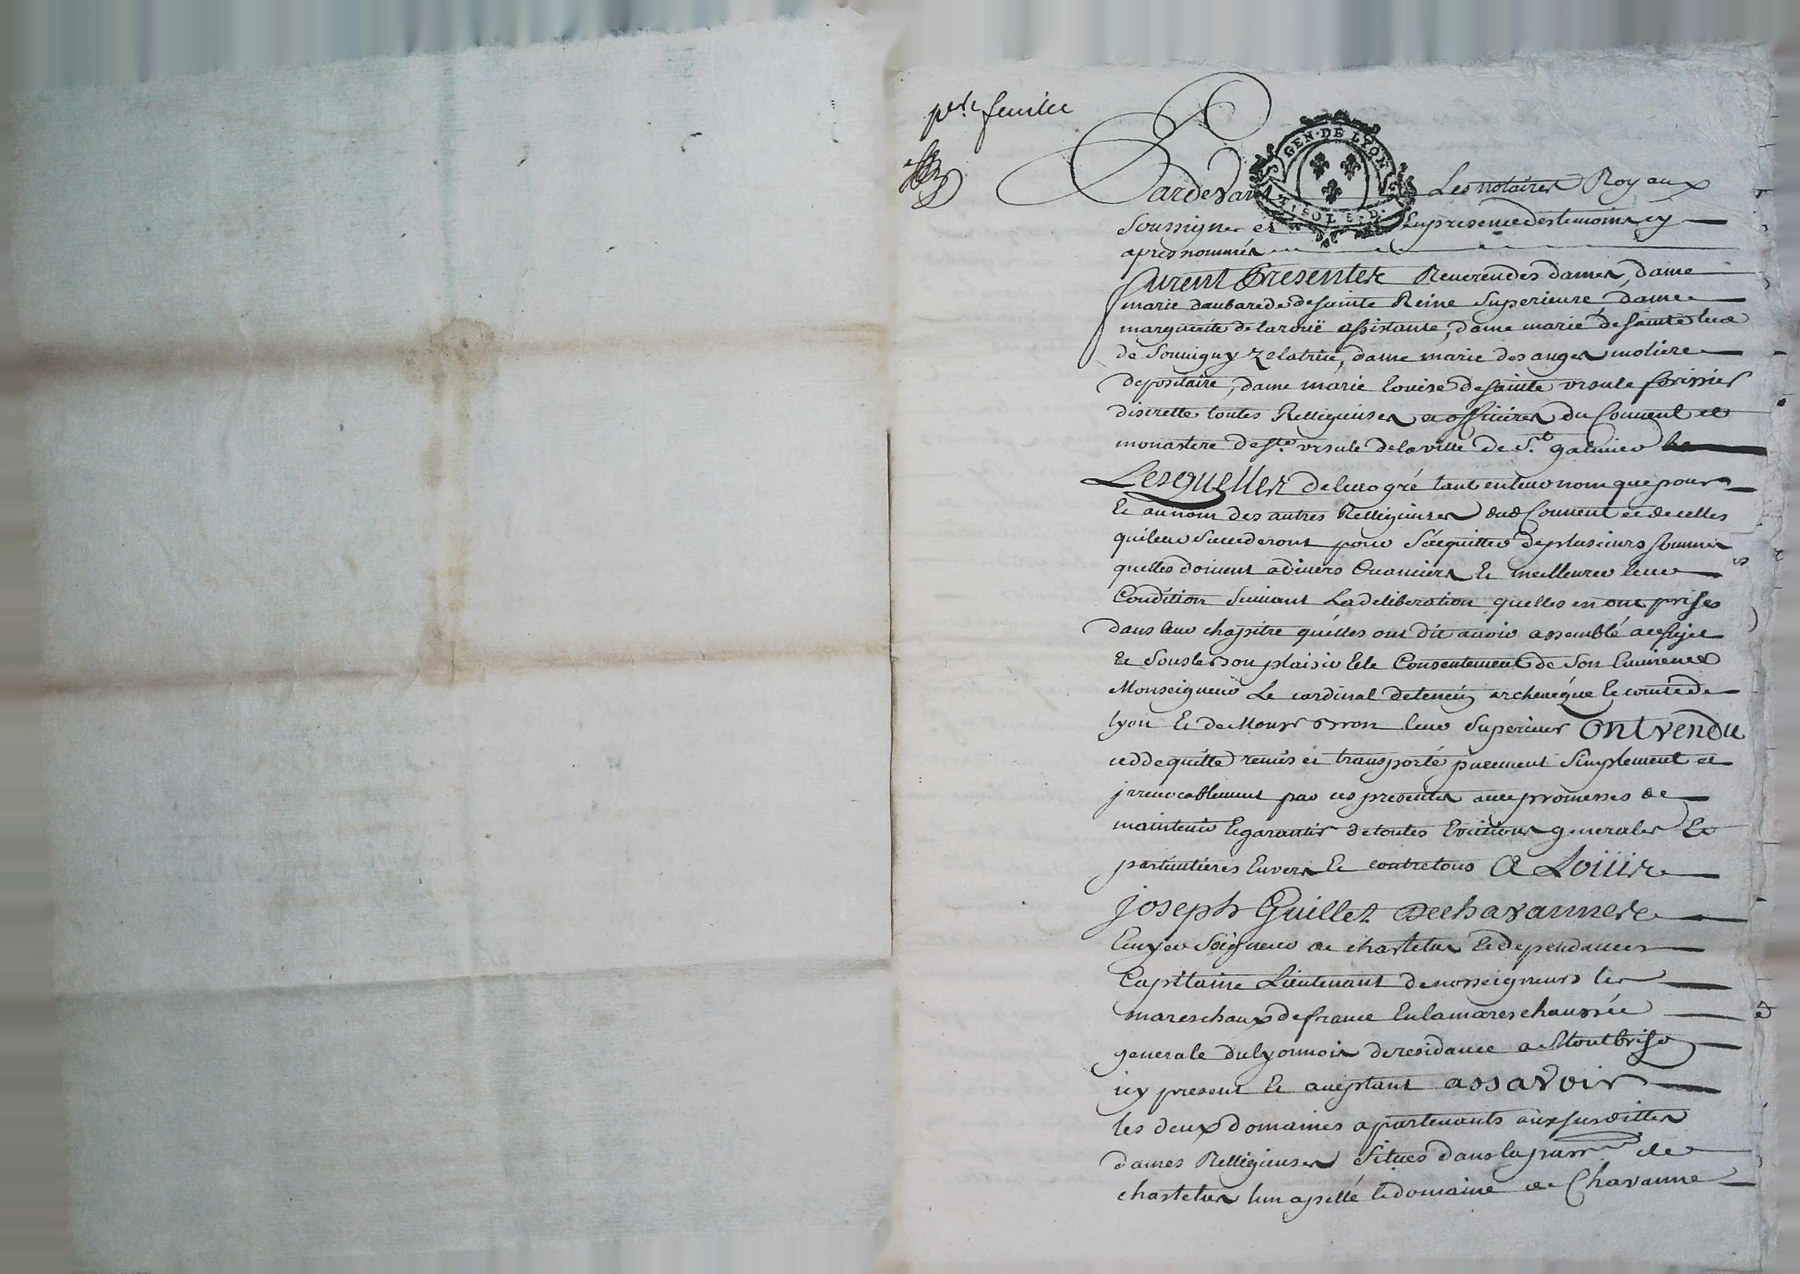 p.re feuille
GEN·DE LYON
Pardevant Les notaires Royaux
Soussignes et En presence des temoins cy
apres nommés
furent Presentes Reverendes dames, dame
marie daubarede de sainte Reine Superieure, dame
marguerite de laroüe assistante, dame marie de sainte luce
de Souvigny Zelatrice, dame marie des anges moliere
depositaire, dame marie louise de sainte ursule forissier
discrette toutes Relligieuses et officieres du Couvent et
monastere de s.te ursule de la ville de S.t galmier
Lesquelles de leur gré tant en leur nom que pour
Et au nom des autres Relligieuses dud Couvent et de celles
qui leur Succederont pour S'acquitter de plusieurs sommes
quelles doivent a divers Creanciers Et meilleurer leur
Condition Suivant La deliberation quelles en ont prises
dans leur chapitre qu'elles ont dit avoir assemblé a ce sujet
Et Sous le bon plaisir Et le Consentement de Son Eminence
Monseigneur Le cardinal detencin archevéque Et comte de
lyon Et de Monsr leur Superieur Ont vendu
cedde quitté remis et transporté purement Simplement et
jrrevocablement par ces presentes avec promesses de
maintenir Et garantir de toutes Evictions generales Et
particulieres Envers Et contre tous A Loüis
joseph Guillet de chavannes
Ecuyer Seigneur de chastelus Et dependances
Capitaine Lieutenant de nosseigneurs les
mareschaux de france En la mareschaussée
generale du lyonnois de residance a Montbrison
icy present Et acceptant assavoir
les deux domaines apartenants aux susdittes
dames Relligieuses Situés dans la parr.e de
chastelus l'un apellé le domaine de Chavanne